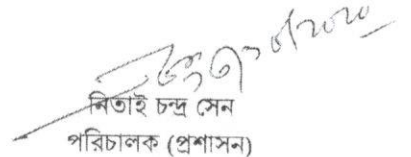 নিতাই চন্দ্র সেন
পরিচালক (প্রশাসন)